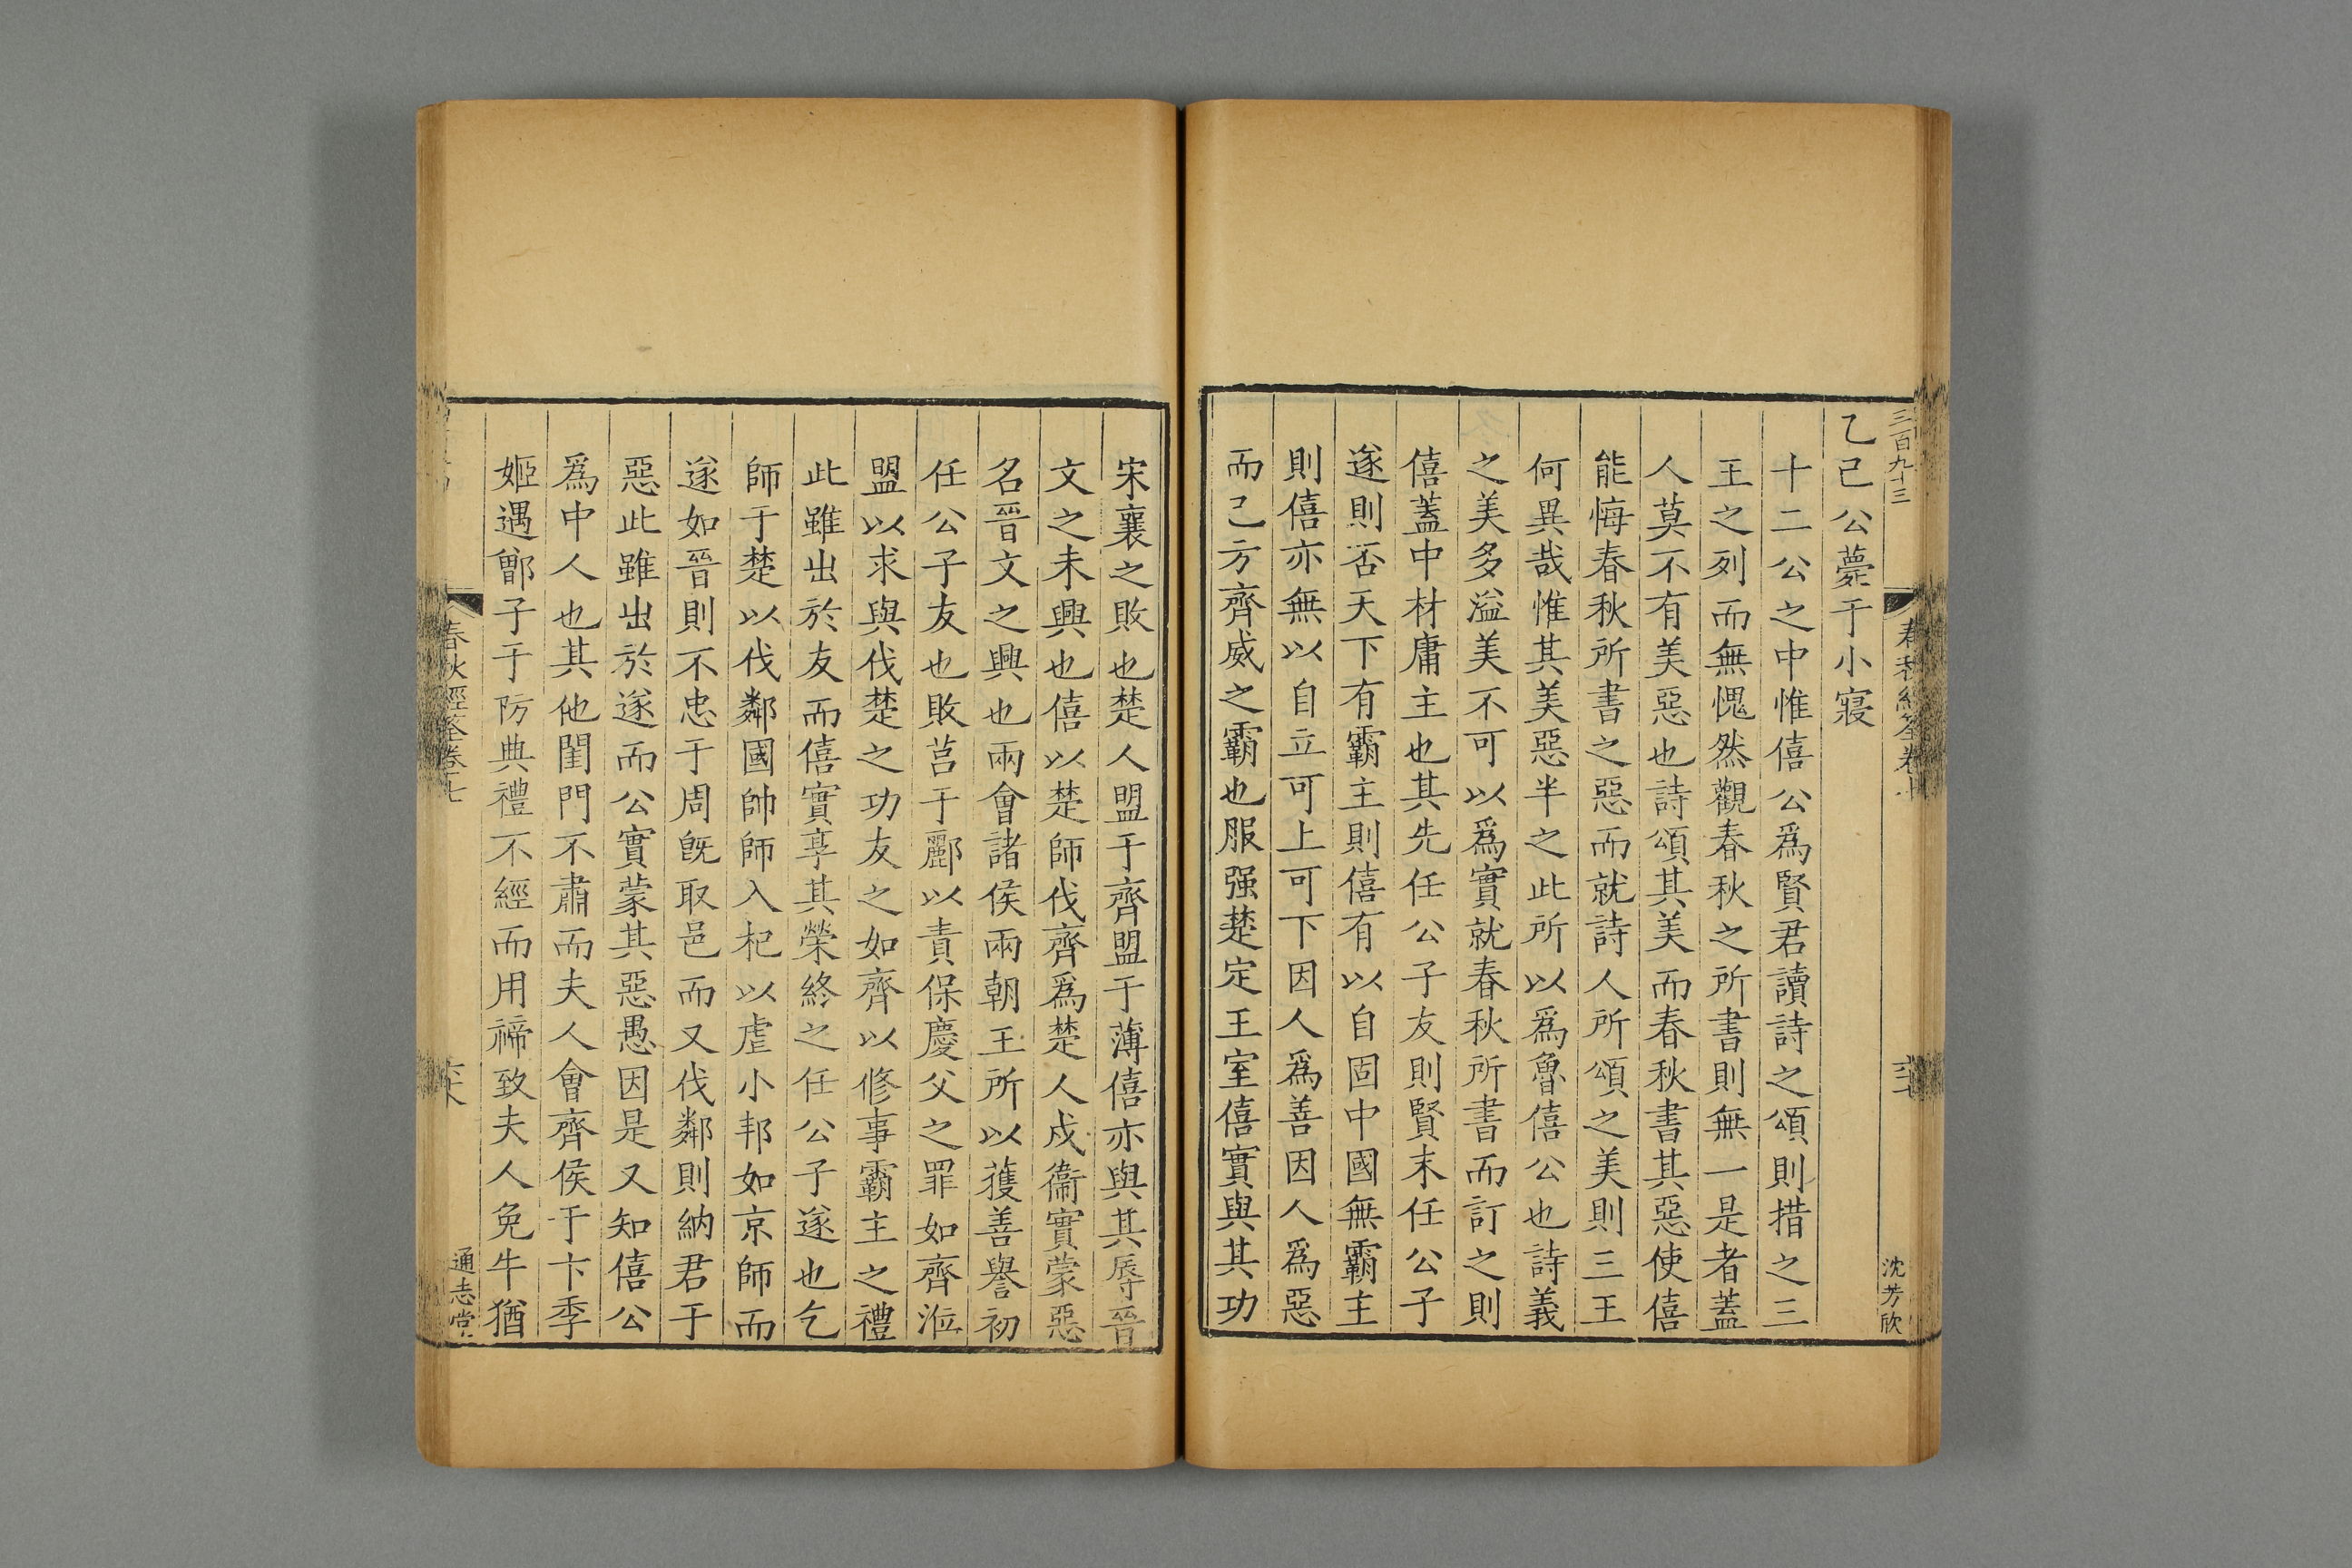 三百九十三
春秋經筌卷
沈芳欣
乙巳公薨于小寢
十二公之中惟僖公爲賢君讀詩之頌則措之三
王之列而無愧然觀春秋之所書則無一是者蓋
人莫不有美惡也詩頌其美而春秋書其惡使僖
能悔春秋所書之惡而就詩人所頌之美則三王
何異哉惟其美惡半之此所以爲魯僖公也詩義
之美多溢美不可以爲實就春秋所書而訂之則
僖蓋中材庸主也其先任公子友則賢末任公子
遂則否天下有霸主則僖有以自固中國無霸主
則僖亦無以自立可上可下因人爲善因人爲惡
而已方齊威之霸也服强楚定王室僖實與其功
宋襄之敗也楚人盟于齊盟于薄僖亦與其辱晉
文之未興也僖以楚師伐齊爲楚人戍衞實蒙惡
名晉文之興也兩會諸侯兩朝王所以獲善譽初
任公子友也敗莒于酈以責保慶父之罪如齊涖
盟以求與伐楚之功友之如齊以修事霸主之禮
此雖出於友而僖實享其榮終之任公子遂也乞
師于楚以伐鄰國帥師入杞以虐小邦如京師而
遂如晉則不忠于周旣取邑而又伐鄰則納君于
惡此雖出於遂而公實蒙其惡愚因是又知僖公
爲中人也其他閨門不肅而夫人會齊侯于卞季
姬遇鄫子于防典禮不經而用禘致夫人免牛猶
春秋經筌卷七
通志堂